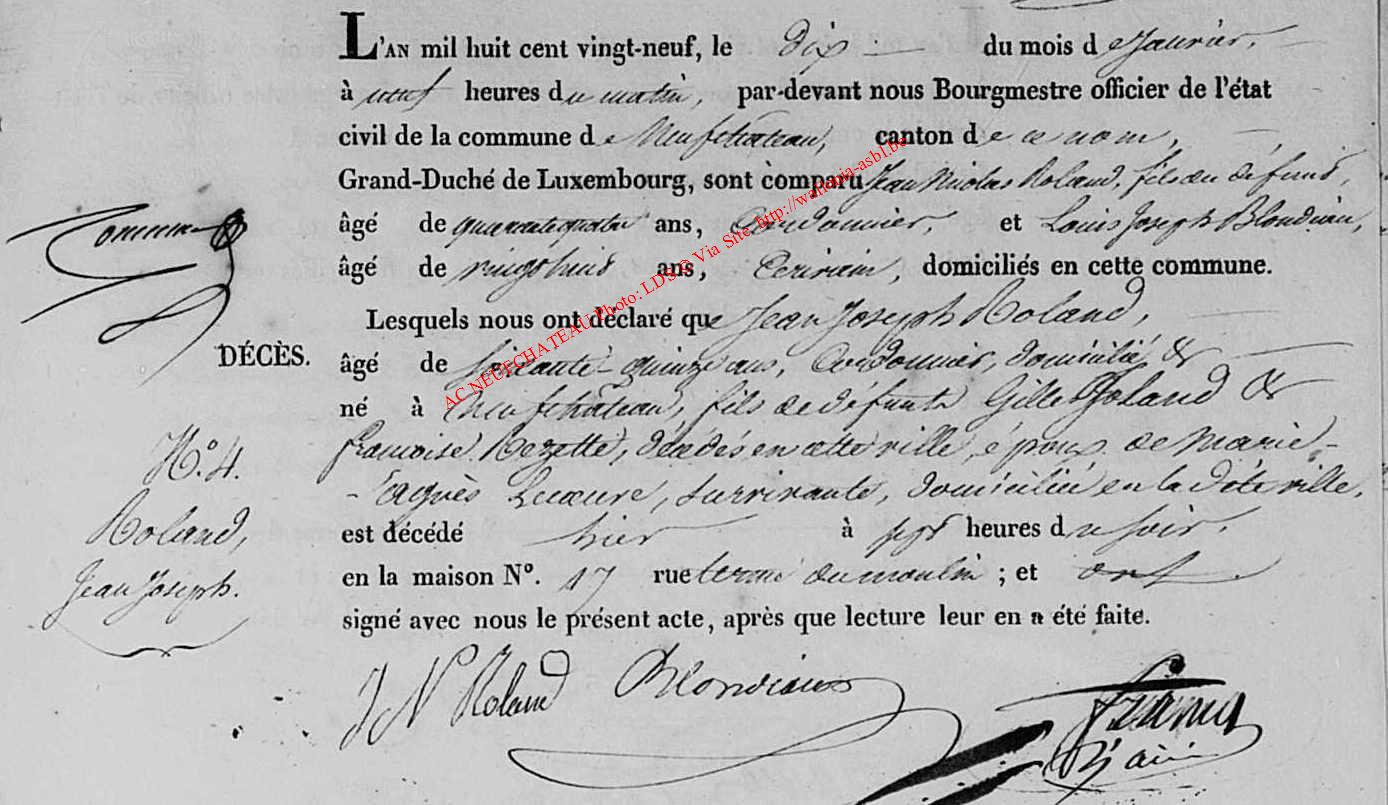 L'AN mil huit cent vingt-neuf, le dix du mois de Janvier,
à neuf heures du matin, par-devant nous Bourgmestre officier de l'état
civil de la commune de Neufchateau, canton de ce nom,
Grand-Duché de Luxembourg, sont comparu Jean Nicolas Roland, fils du défunt,
âgé de quarante quatre ans, Cordonnier, et Louis Joseph Blondiau,
âgé de vingt huit ans, Ecrivain, domiciliés en cette commune.
Lesquels nous ont déclaré que Jean Joseph Roland,
DÉCÈS.
âgé de soixante-quinze ans, Cordonnier, domicilié &
né à Neufchateau, fils de défunts Gille Roland &
françoise Rezette, décédés en cette ville, époux de Marie-
agnès survivante, domiciliée en la dite ville,
est décédé hier à sept heures du soir,
en la maison N°. 17 rue du moulin ; et ont
signé avec nous le présent acte, après que lecture leur en a été faite.
N°. 4.
Roland,
Jean Joseph.
J N Roland Blondiau
AC NEUFCHATEAU Photo: LDS © Via Site http://wallonia-asbl.be